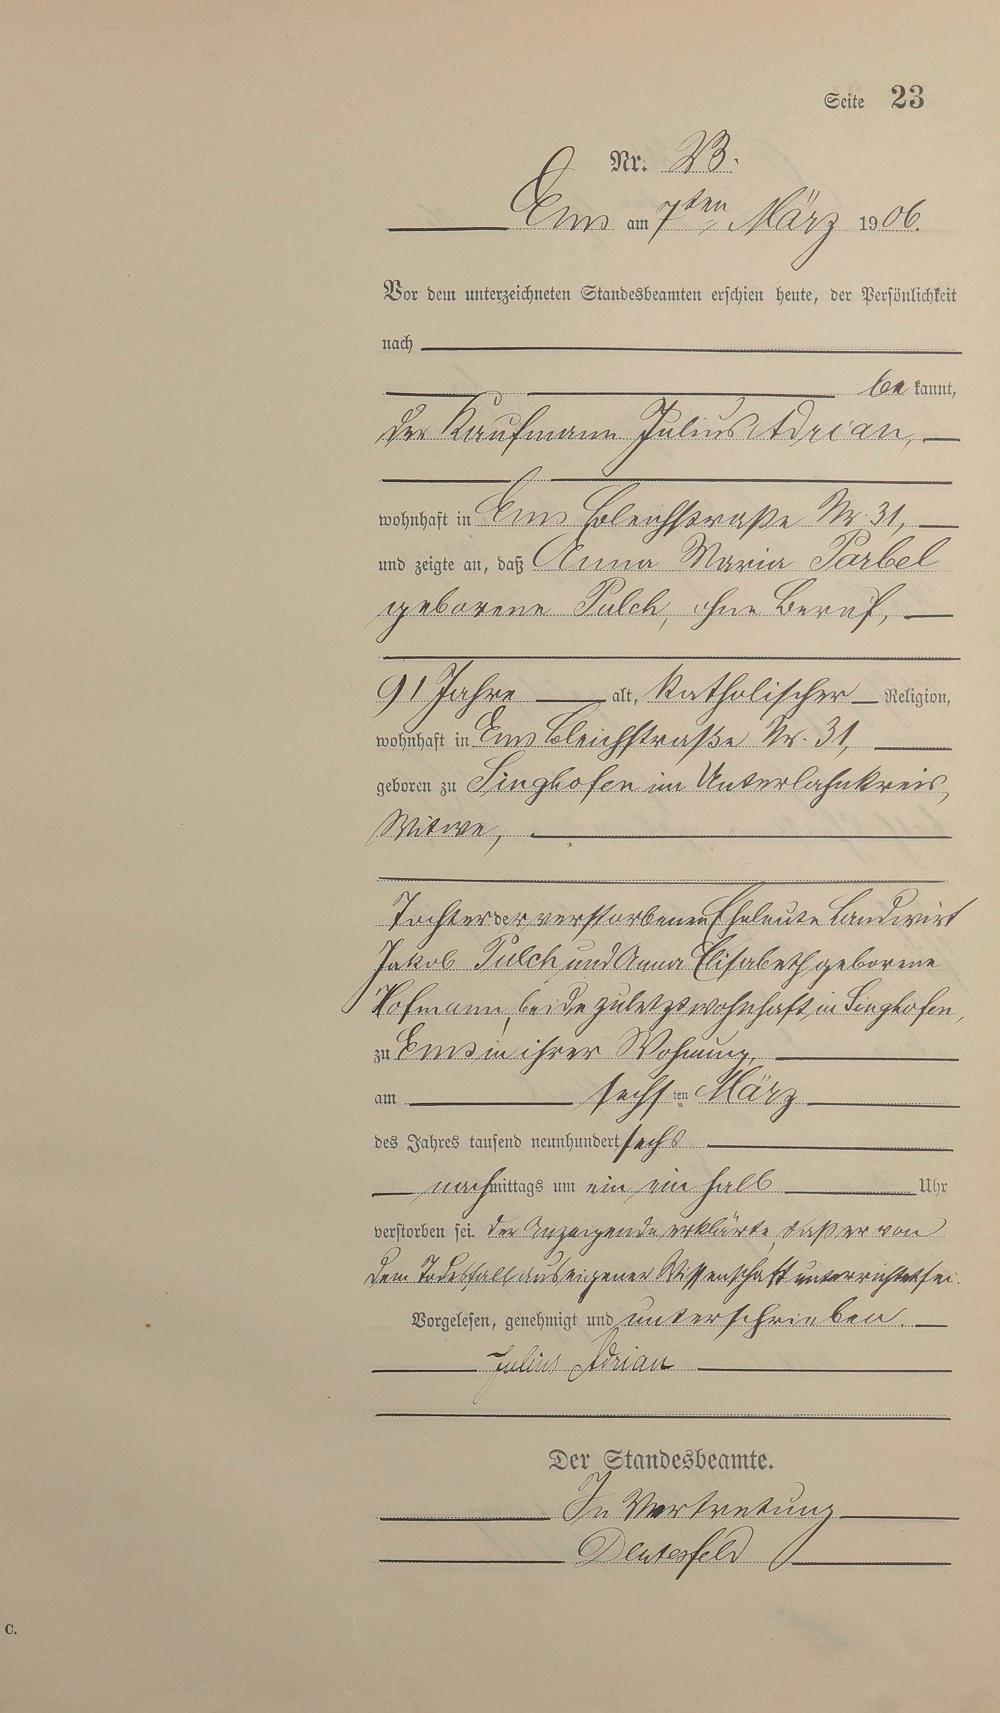 Seite 23
Nr. 23.
Ems am 7ten März 1906.
Vor dem unterzeichneten Standesbeamten erschien heute, der Persönlichkeit
nach
bekannt,
der Kaufmann Julius Adrian,
wohnhaft in Ems Bleichstraße Nr. 31,
und zeigte an, daß Anna Maria Porbel
geborene Pulch, ohne Beruf,
91 Jahre alt, katholischer Religion,
wohnhaft in Ems Bleichstraße Nr. 31,
geboren zu Singhofen im Unterlahnkreis,
Witwe,
Tochter der verstorbenen Eheleute Landwirt
Jakob Pulch und Anna Elisabeth geborene
Hofmann, beide zuletzt wohnhaft in Singhofen,
zu Ems in ihrer Wohnung,
am sechsten März
des Jahres tausend neunhundert sechs
nachmittags um ein ein halb Uhr
verstorben sei. Der Anzeigende erklärte, daß er von
dem Todesfall aus eigener Wissenschaft unterrichtet sei.
Vorgelesen, genehmigt und unterschrieben.
Julius Adrian
Der Standesbeamte.
In Vertretung
C.